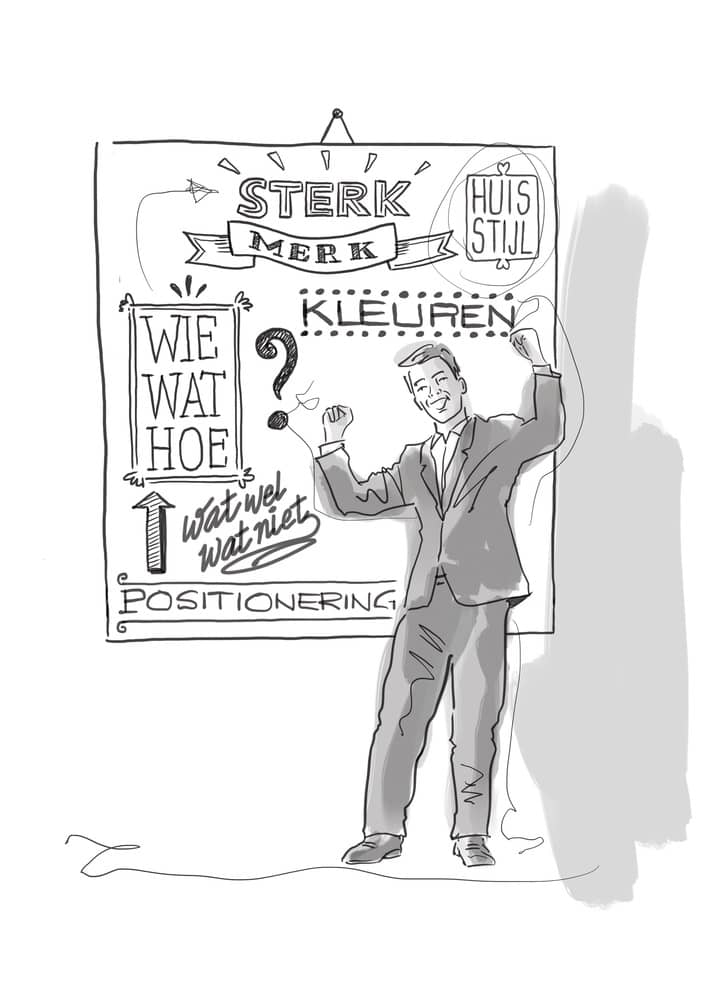 STERK
MERK
HUIS
STIJL
KLEUREN
WIE
WAT
HOE
?
Wat wel
Wat niet
POSITIONERING